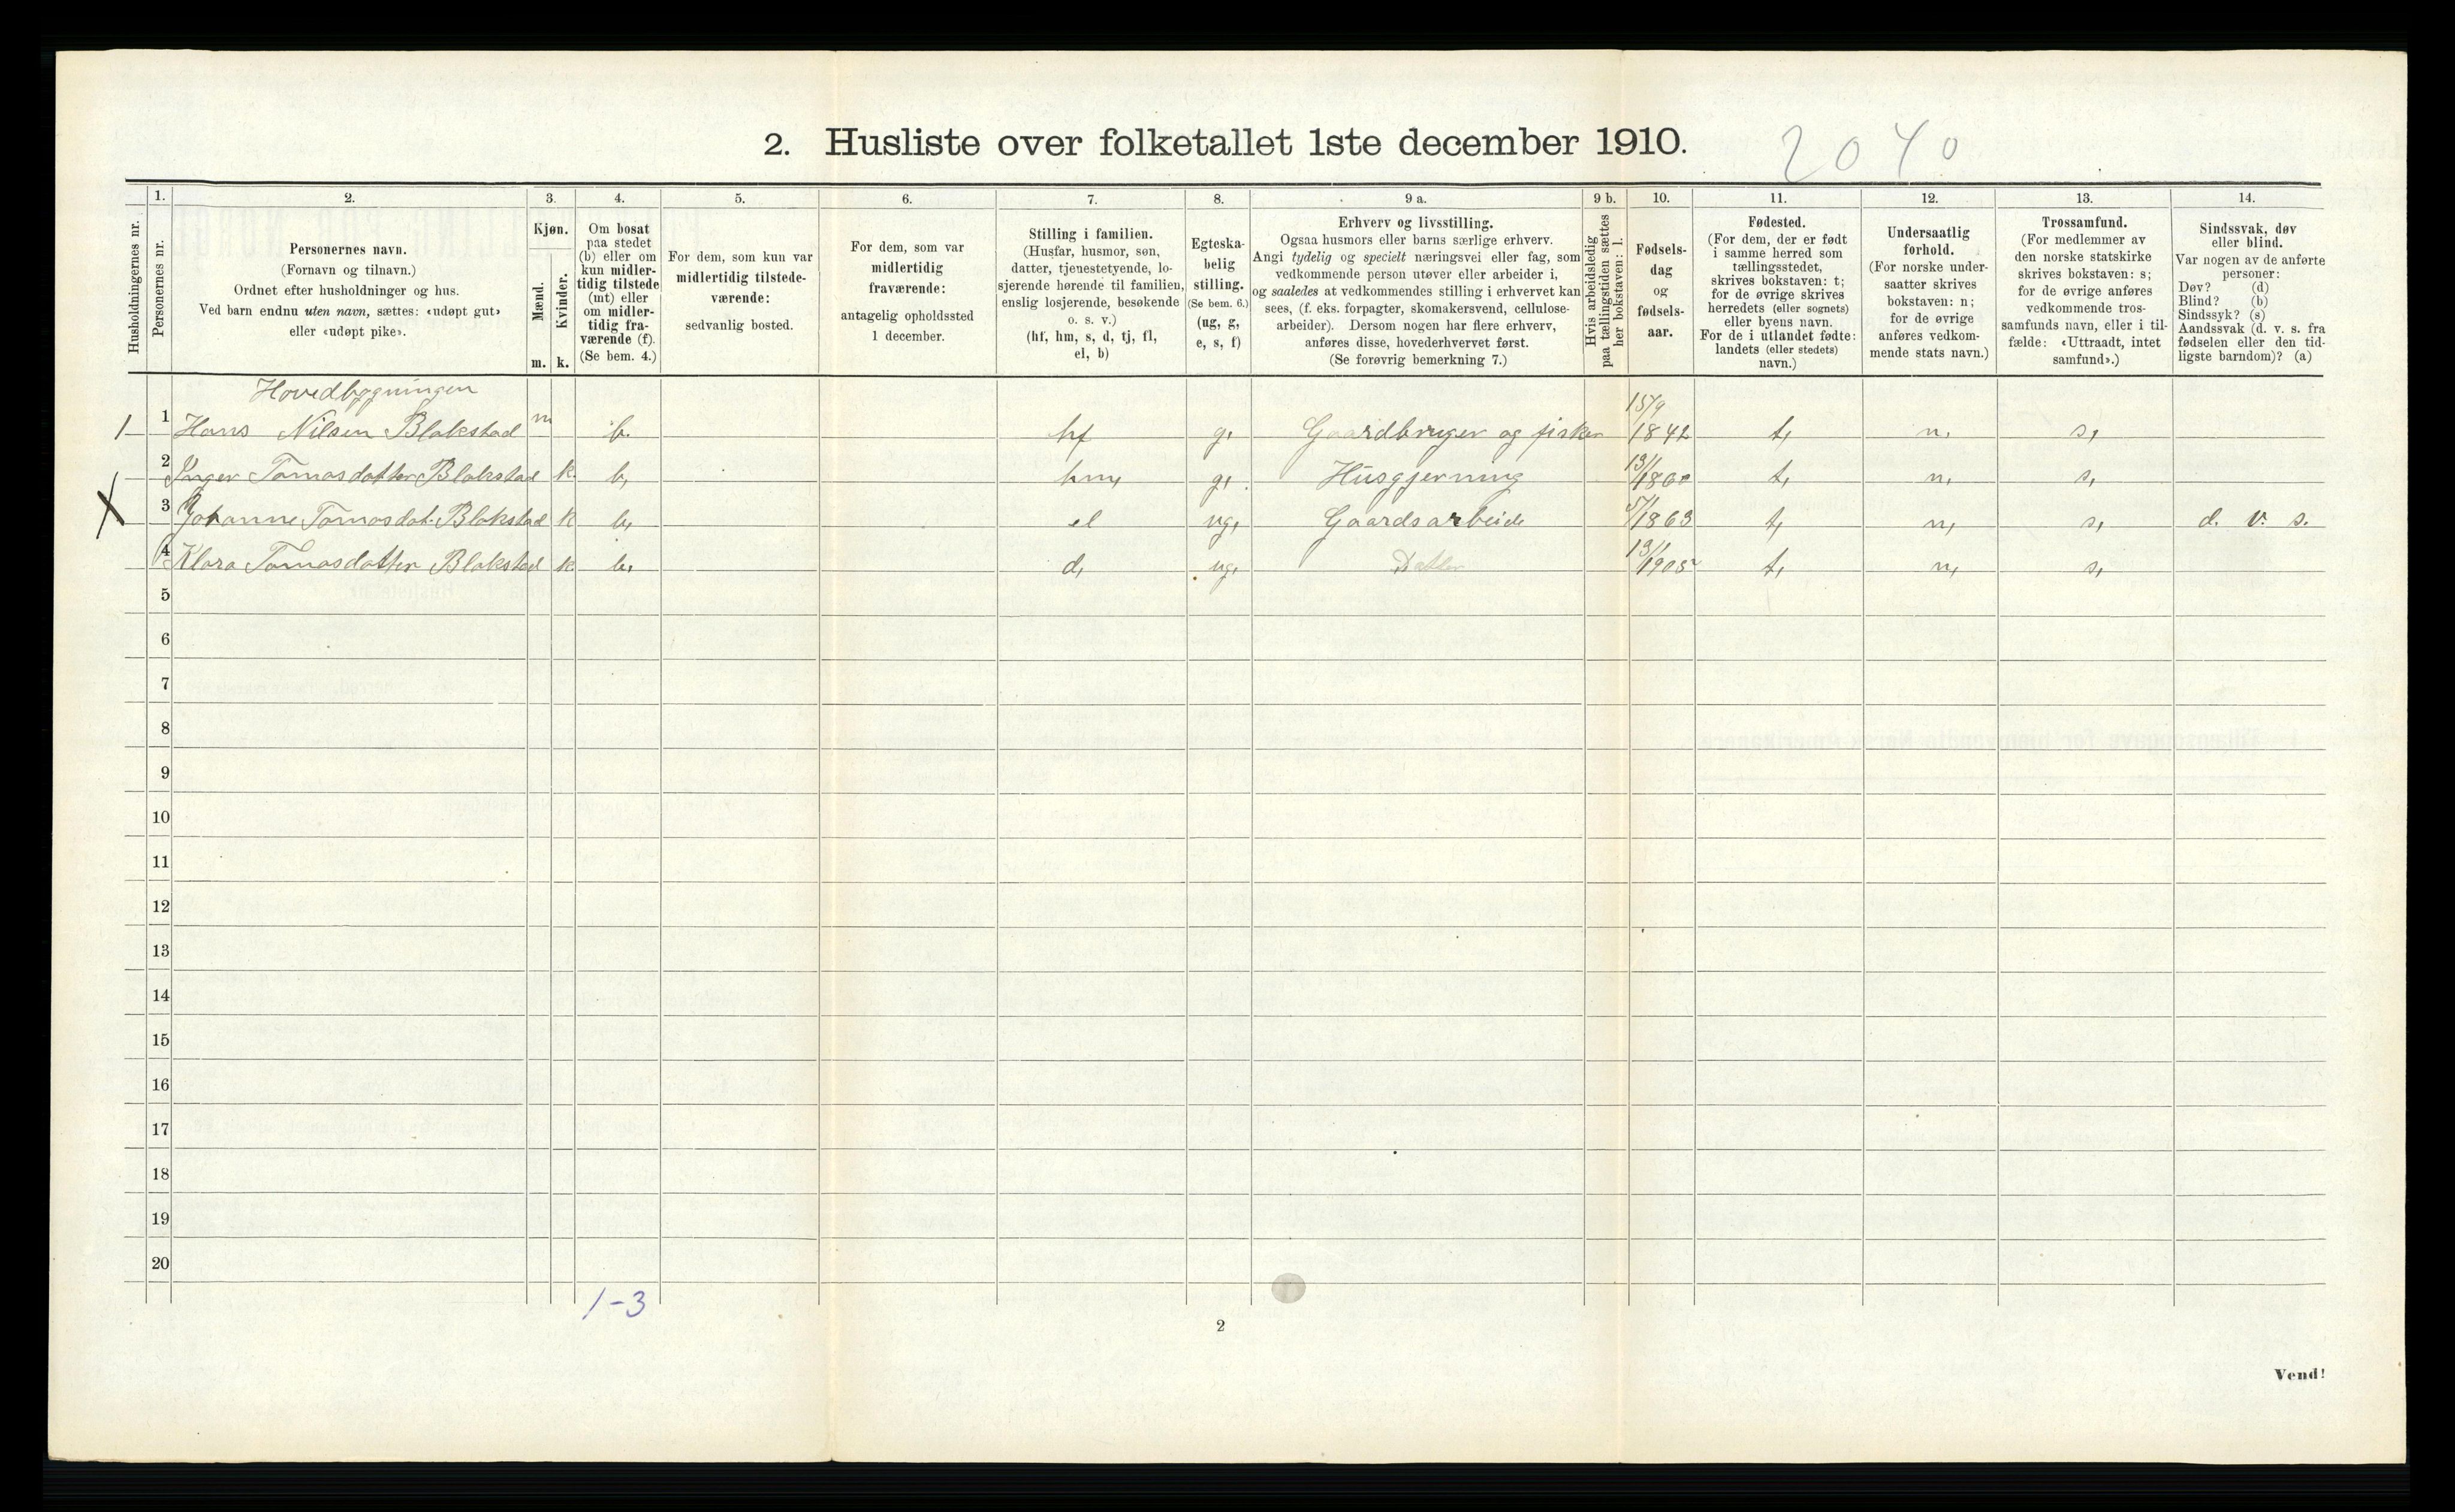 2. Husliste over folketallet 1ste december 1910.
2040
Husholdningernes nr.
1.
Personernes nr.
2.
Personernes navn.
(Fornavn og tilnavn.)
Ordnet efter husholdninger og hus.
Ved barn endnu uten navn, sættes: «udøpt gut»
eller «udøpt pike».
3.
Kjøn.
Mænd.
Kvinder.
m. k.
4.
Om bosat
paa stedet
(b) eller om
kun midler-
tidig tilstede
(mt) eller
om midler-
tidig fra-
værende (f).
(Se bem. 4.)
5.
For dem, som kun var
midlertidig tilstede-
værende:
sedvanlig bosted.
6.
For dem, som var
midlertidig
fraværende:
antagelig opholdssted
1 december.
7.
Stilling i familien.
(Husfar, husmor, søn,
datter, tjenestetyende, lo-
sjerende hørende til familien,
enslig losjerende, besøkende
o. s. v.)
(hf, hm, s, d, tj, fl,
el, b)
8.
Egteska-
belig
stilling.
(Se bem. 6.)
(ug, g,
e, s, f)
9 a.
Erhverv og livsstilling.
Ogsaa husmors eller barns særlige erhverv.
Angi tydelig og specielt næringsvei eller fag, som
vedkommende person utøver eller arbeider i,
og saaledes at vedkommendes stilling i erhvervet kan
sees, (f. eks. forpagter, skomakersvend, cellulose-
arbeider). Dersom nogen har flere erhverv,
anføres disse, hovederhvervet først.
(Se forøvrig bemerkning 7.)
9 b.
Hvis arbeidsledig
paa tællingstiden sættes
her bokstaven: l.
10.
Fødsels-
dag
og
fødsels-
aar.
11.
Fødested.
(For dem, der er født
i samme herred som
tællingsstedet,
skrives bokstaven: t;
for de øvrige skrives
herredets (eller sognets)
eller byens navn.
For de i utlandet fødte:
landets (eller stedets)
navn.)
12.
Undersaatlig
forhold.
(For norske under-
saatter skrives
bokstaven: n;
for de øvrige
anføres vedkom-
mende stats navn.)
13.
Trossamfund.
(For medlemmer av
den norske statskirke
skrives bokstaven: s;
for de øvrige anføres
vedkommende tros-
samfunds navn, eller i til-
fælde: «Uttraadt, intet
samfund».)
14.
Sindssvak, døv
eller blind.
Var nogen av de anførte
personer:
Døv? (d)
Blind? (b)
Sindssyk? (s)
Aandssvak (d. v. s. fra
fødselen eller den tid-
ligste barndom)? (a)
Hovedbygningen
1 1 Hans Nilsen Blokstad m b. hf g, Gaardbruger og fisker 15/9 1842 t, n, s,
2 Inger Tomasdatter Blokstad k b, hm, g, Husgjerning 13/ t, n, s,
X 3 Johanne Tomasdat. Blokstad k b, el ug, Gaardsarbeide 1863 t, n, s, d. v. s.
4 Klara Tomasdatter Blokstad k b, d, ug, Datter 13/1 1905 t, n, s,
5
6
7
8
9
10
11
12
13
14
15
16
17
18
19
20
1-3
2
Vend!